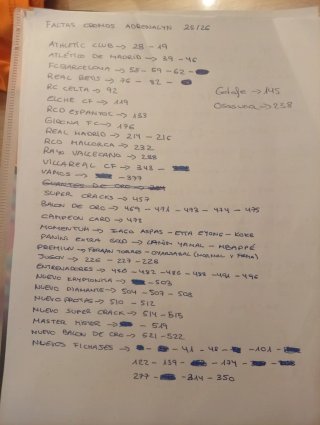 FALTAS CROMOS ADRENALYN 25/26
ATHLETIC CLUB → 28 - 19
ATLÉTICO DE MADRID → 39 - 46
FC BARCELONA → 55 - 59 - 62 -
REAL BETIS → 76 - 82 -
RC CELTA → 92
Getafe → 145
ELCHE CF → 119
Osasuna → 238
RCD ESPANYOL → 133
GIRONA FC → 176
REAL MADRID → 214 - 216
RCD MALLORCA → 232
RAYO VALLECANO → 288
VILLAREAL CF → 348 -
VAMOS → - 397
SUPER CRACKS → 457
BALON DE ORO → 469 - 471 - 473 - 474 - 475
CAMPEON CARD → 478
MOMENTUM → IAGO ASPAS - ETTA EYONG - KOKE
PANINI EXTRA GOLD → LAMINE YAMAL - MBAPPÉ
PREMIUM → FERRAN TORRES - OYARZABAL (NORMAL Y FIRMA)
JUGON → 226 - 227 - 228
ENTRENADORES → 480 - 482 - 486 - 488 - 491 - 496
NUEVO KRYPTONITA → - 503
NUEVO DIAMANTE → 504 - 507 - 508
NUEVO PROTAS → 510 - 512
NUEVO SUPER CRACK → 514 - 515
MASTER → - 519
NUEVO BALON DE ORO → 521 - 522
NUEVOS FICHAJES → - - 41 - 48 - - 101 -
122 - 139 - - 174 - -
277 - - 314 - 350